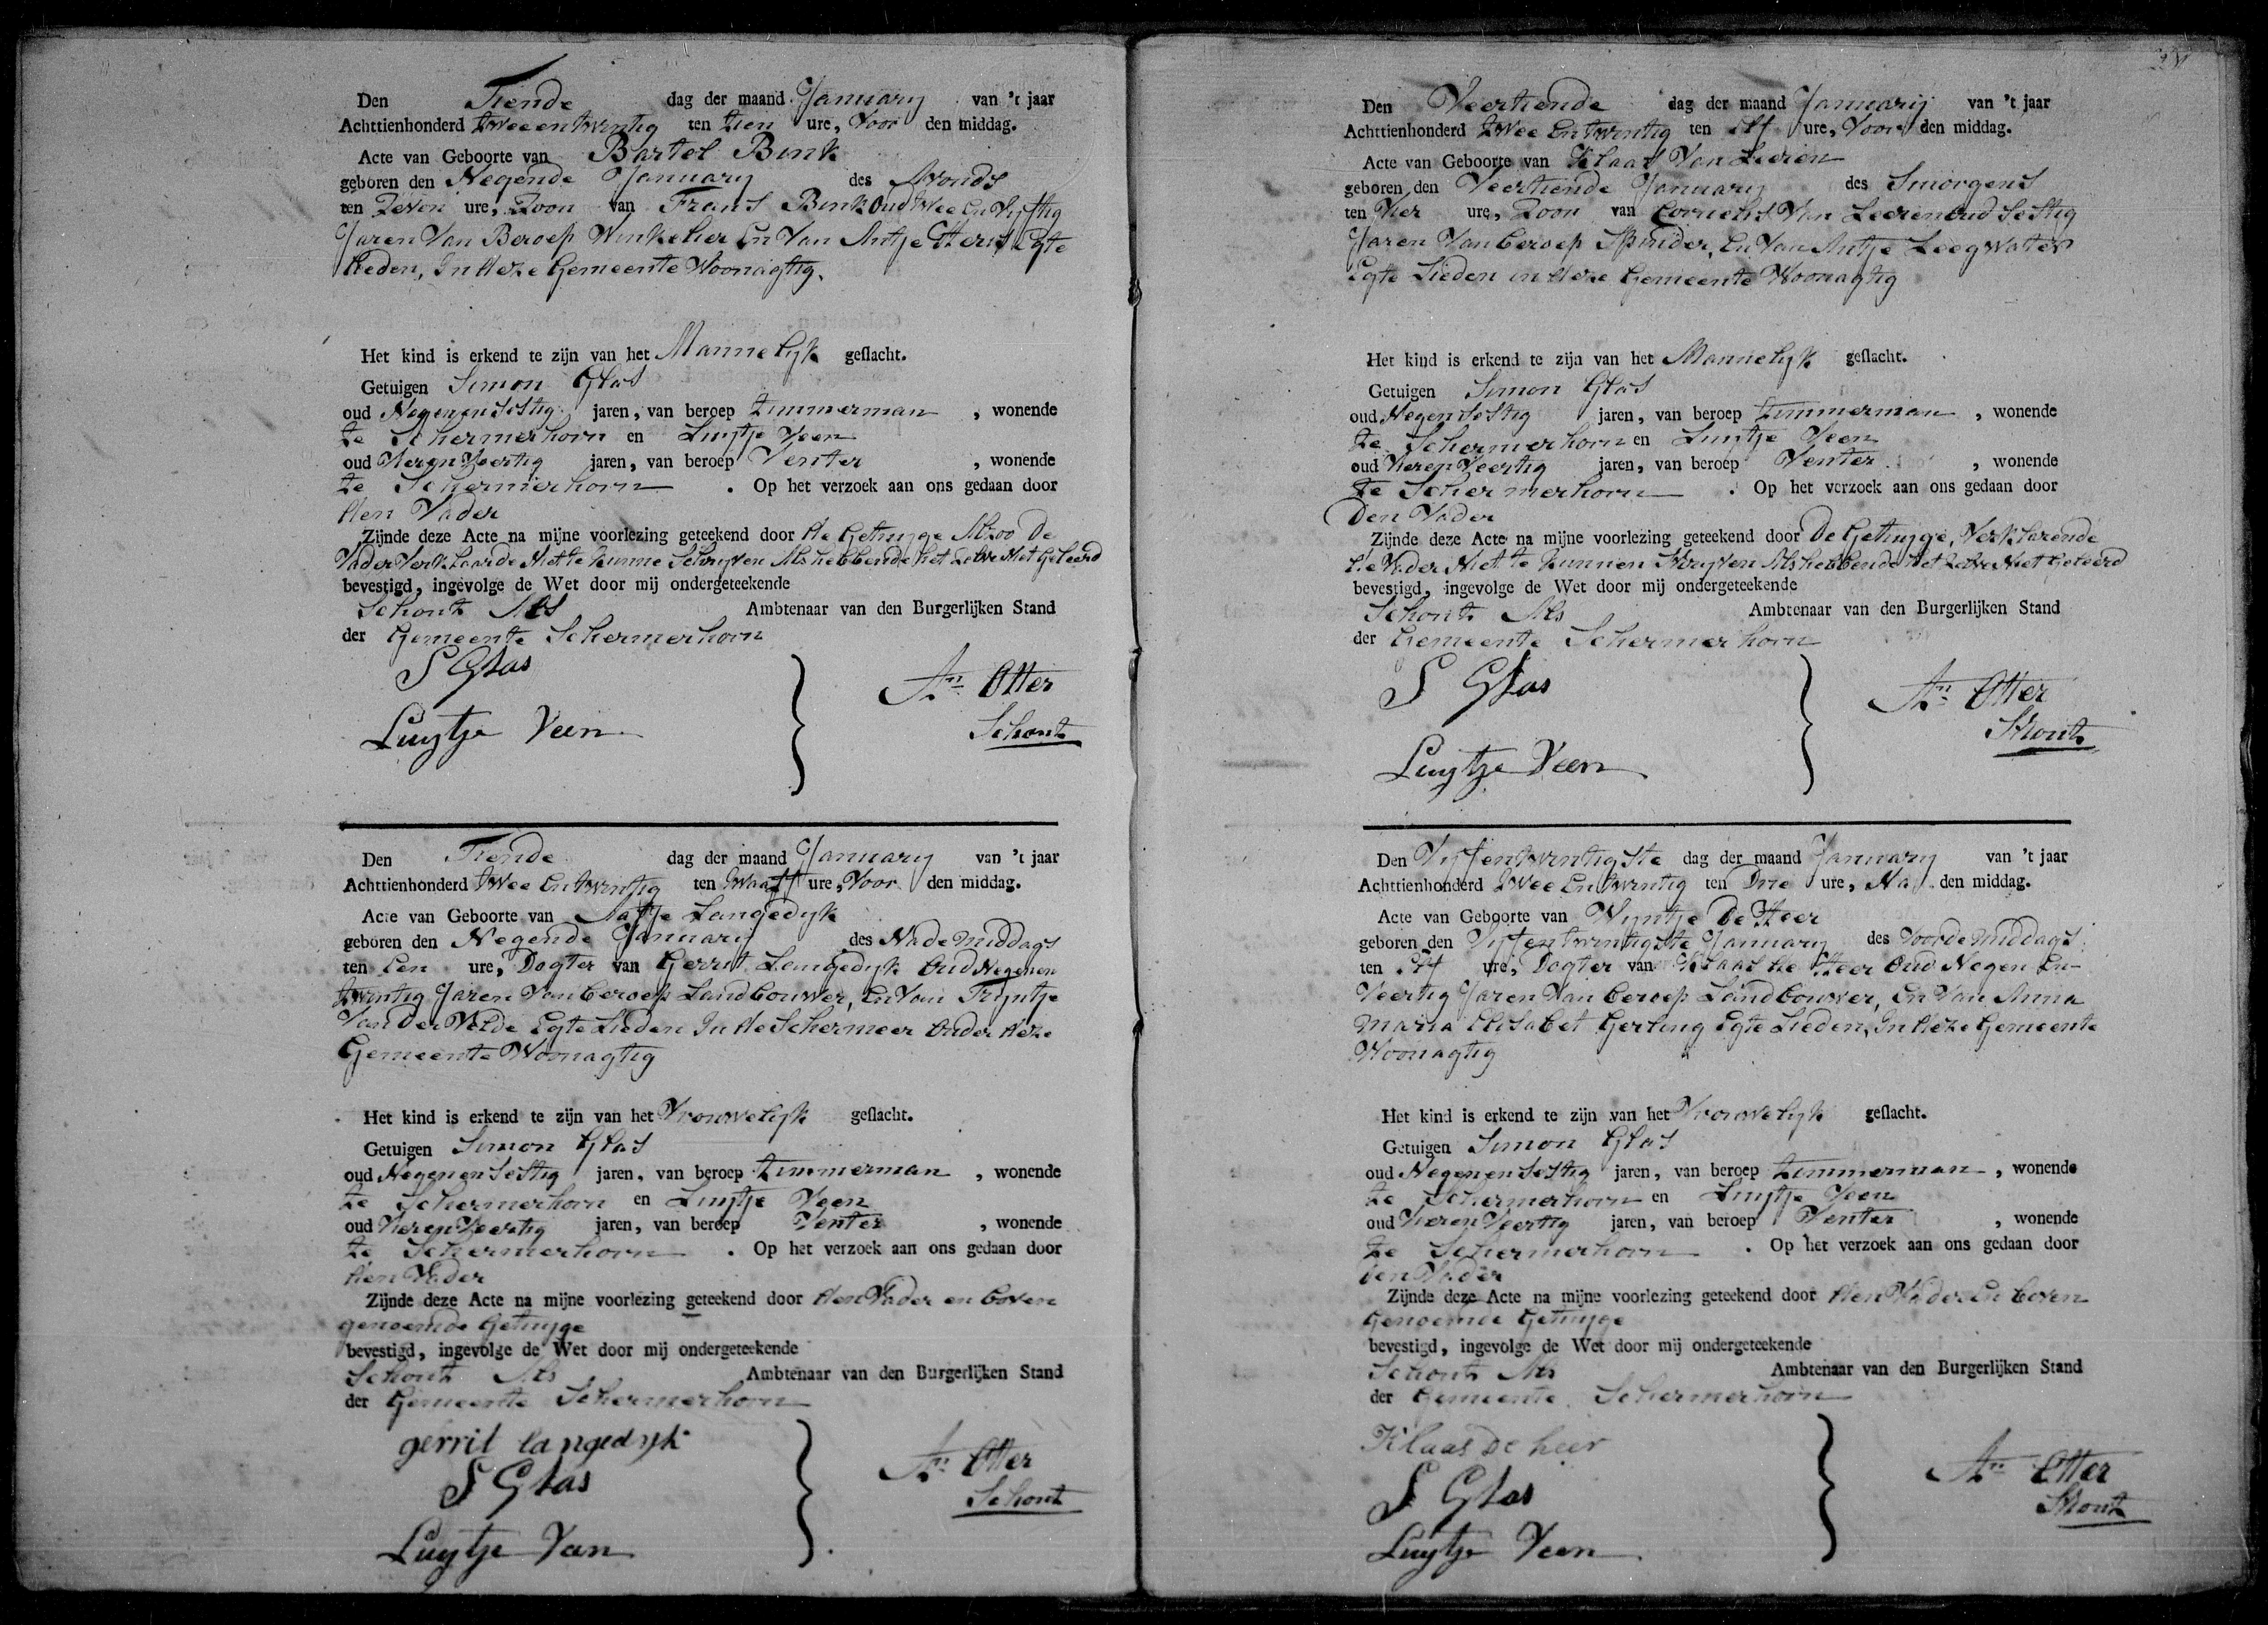 Den Tiende dag der maand January van 't jaar
Achttienhonderd twee en twintig ten tien ure, Voor den middag.
Acte van Geboorte van Bartel Bink
geboren den Negende January des Avonds
ten Zeven ure, Zoon van Frans Bink Oud twee En Vyftig
Jaren Van Beroep Winkelier En Van Antje Egte
Lieden, In deze Gemeente Woonagtig.
Het kind is erkend te zijn van het Mannelyk geslacht.
Getuigen Simon Glas
oud Negenensestig jaren, van beroep timmerman, wonende
te Schermerhorn en Luytje Veen
oud Vierenveertig jaren, van beroep Venter, wonende
te Schermerhorn. Op het verzoek aan ons gedaan door
den Vader
Zijnde deze Acte na mijne voorlezing geteekend door de Getuyge Alzoo De
Vader Verklaarde Niet te kunne Schryven Als hebbende het Zelve Niet Geleerd
bevestigd, ingevolge de Wet door mij ondergeteekende
Schout Als Ambtenaar van den Burgerlijken Stand
der Gemeente Schermerhorn
S Glas
An Otter
Luytje Veen
Schout
Den Tiende dag der maand January van 't jaar
Achttienhonderd twee En twintig ten twaalf ure, Voor den middag.
Acte van Geboorte van Langedyk
geboren den Negende January des Nademiddags
ten Een ure, Dogter van Gerrit Langedyk Oud Negenen
twintig Jaren Van beroep Landbouwer, En Van Tryntje
Van Der Velde Egte Lieden In de Schermeer Onder deze
Gemeente Woonagtig
Het kind is erkend te zijn van het Vrouwelyk geslacht.
Getuigen Simon Glas
oud Negenensestig jaren, van beroep timmerman, wonende
te Schermerhorn en Luytje Veen
oud Vierenveertig jaren, van beroep Venter, wonende
te Schermerhorn. Op het verzoek aan ons gedaan door
den Vader
Zijnde deze Acte na mijne voorlezing geteekend door den Vader en boven
genoemde Getuyge
bevestigd, ingevolge de Wet door mij ondergeteekende
Schout Als Ambtenaar van den Burgerlijken Stand
der Gemeente Schermerhorn
gerrit langedyk
S Glas
An Otter
Schout
Luytje Veen
Den Veertiende dag der maand January van 't jaar
Achttienhonderd twee En twintig ten Elf ure, Voor den middag.
Acte van Geboorte van Klaas Van Leeren
geboren den Veertiende January des Smorgens
ten Vier ure, Zoon van Cornelis Van Leeren Oud Sestig
Jaren Van beroep En Van Antje Leegwater
Egte Lieden in deze Gemeente Woonagtig
Het kind is erkend te zijn van het Mannelyk geslacht.
Getuigen Simon Glas
oud Negensestig jaren, van beroep timmerman, wonende
te Schermerhorn en Luytje Veen
oud Vierenveertig jaren, van beroep Venter, wonende
te Schermerhorn. Op het verzoek aan ons gedaan door
Den Vader
Zijnde deze Acte na mijne voorlezing geteekend door De Getuyge, Verklarende
de Vader Niet te kunnen Schryven Als hebbende het Zelve Niet Geleerd
bevestigd, ingevolge de Wet door mij ondergeteekende
Schout Als Ambtenaar van den Burgerlijken Stand
der Gemeente Schermerhorn
S Glas
An Otter
Schout
Luytje Veen
Den Vyfentwintigste dag der maand January van 't jaar
Achttienhonderd twee En twintig ten Drie ure, Na den middag.
Acte van Geboorte van Wyntje De Heer
geboren den Vyfentwintigste January des Voordemiddags
ten Elf ure, Dogter van Klaas de Heer Oud Negen En
Veertig Jaren Van beroep Landbouwer, En Van Anna
Maria Elisabet Gerling Egte Lieden, In deze Gemeente
Woonagtig
Het kind is erkend te zijn van het Vrouwelyk geslacht.
Getuigen Simon Glas
oud Negenensestig jaren, van beroep timmerman, wonende
te Schermerhorn en Luytje Veen
oud Vierenveertig jaren, van beroep Venter, wonende
te Schermerhorn. Op het verzoek aan ons gedaan door
den Vader
Zijnde deze Acte na mijne voorlezing geteekend door den Vader En boven
Genoemde Getuyge
bevestigd, ingevolge de Wet door mij ondergeteekende
Schout Als Ambtenaar van den Burgerlijken Stand
der Gemeente Schermerhorn
Klaas de heer
S Glas
An Otter
Schout
Luytje Veen